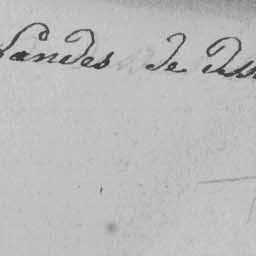 Landes de